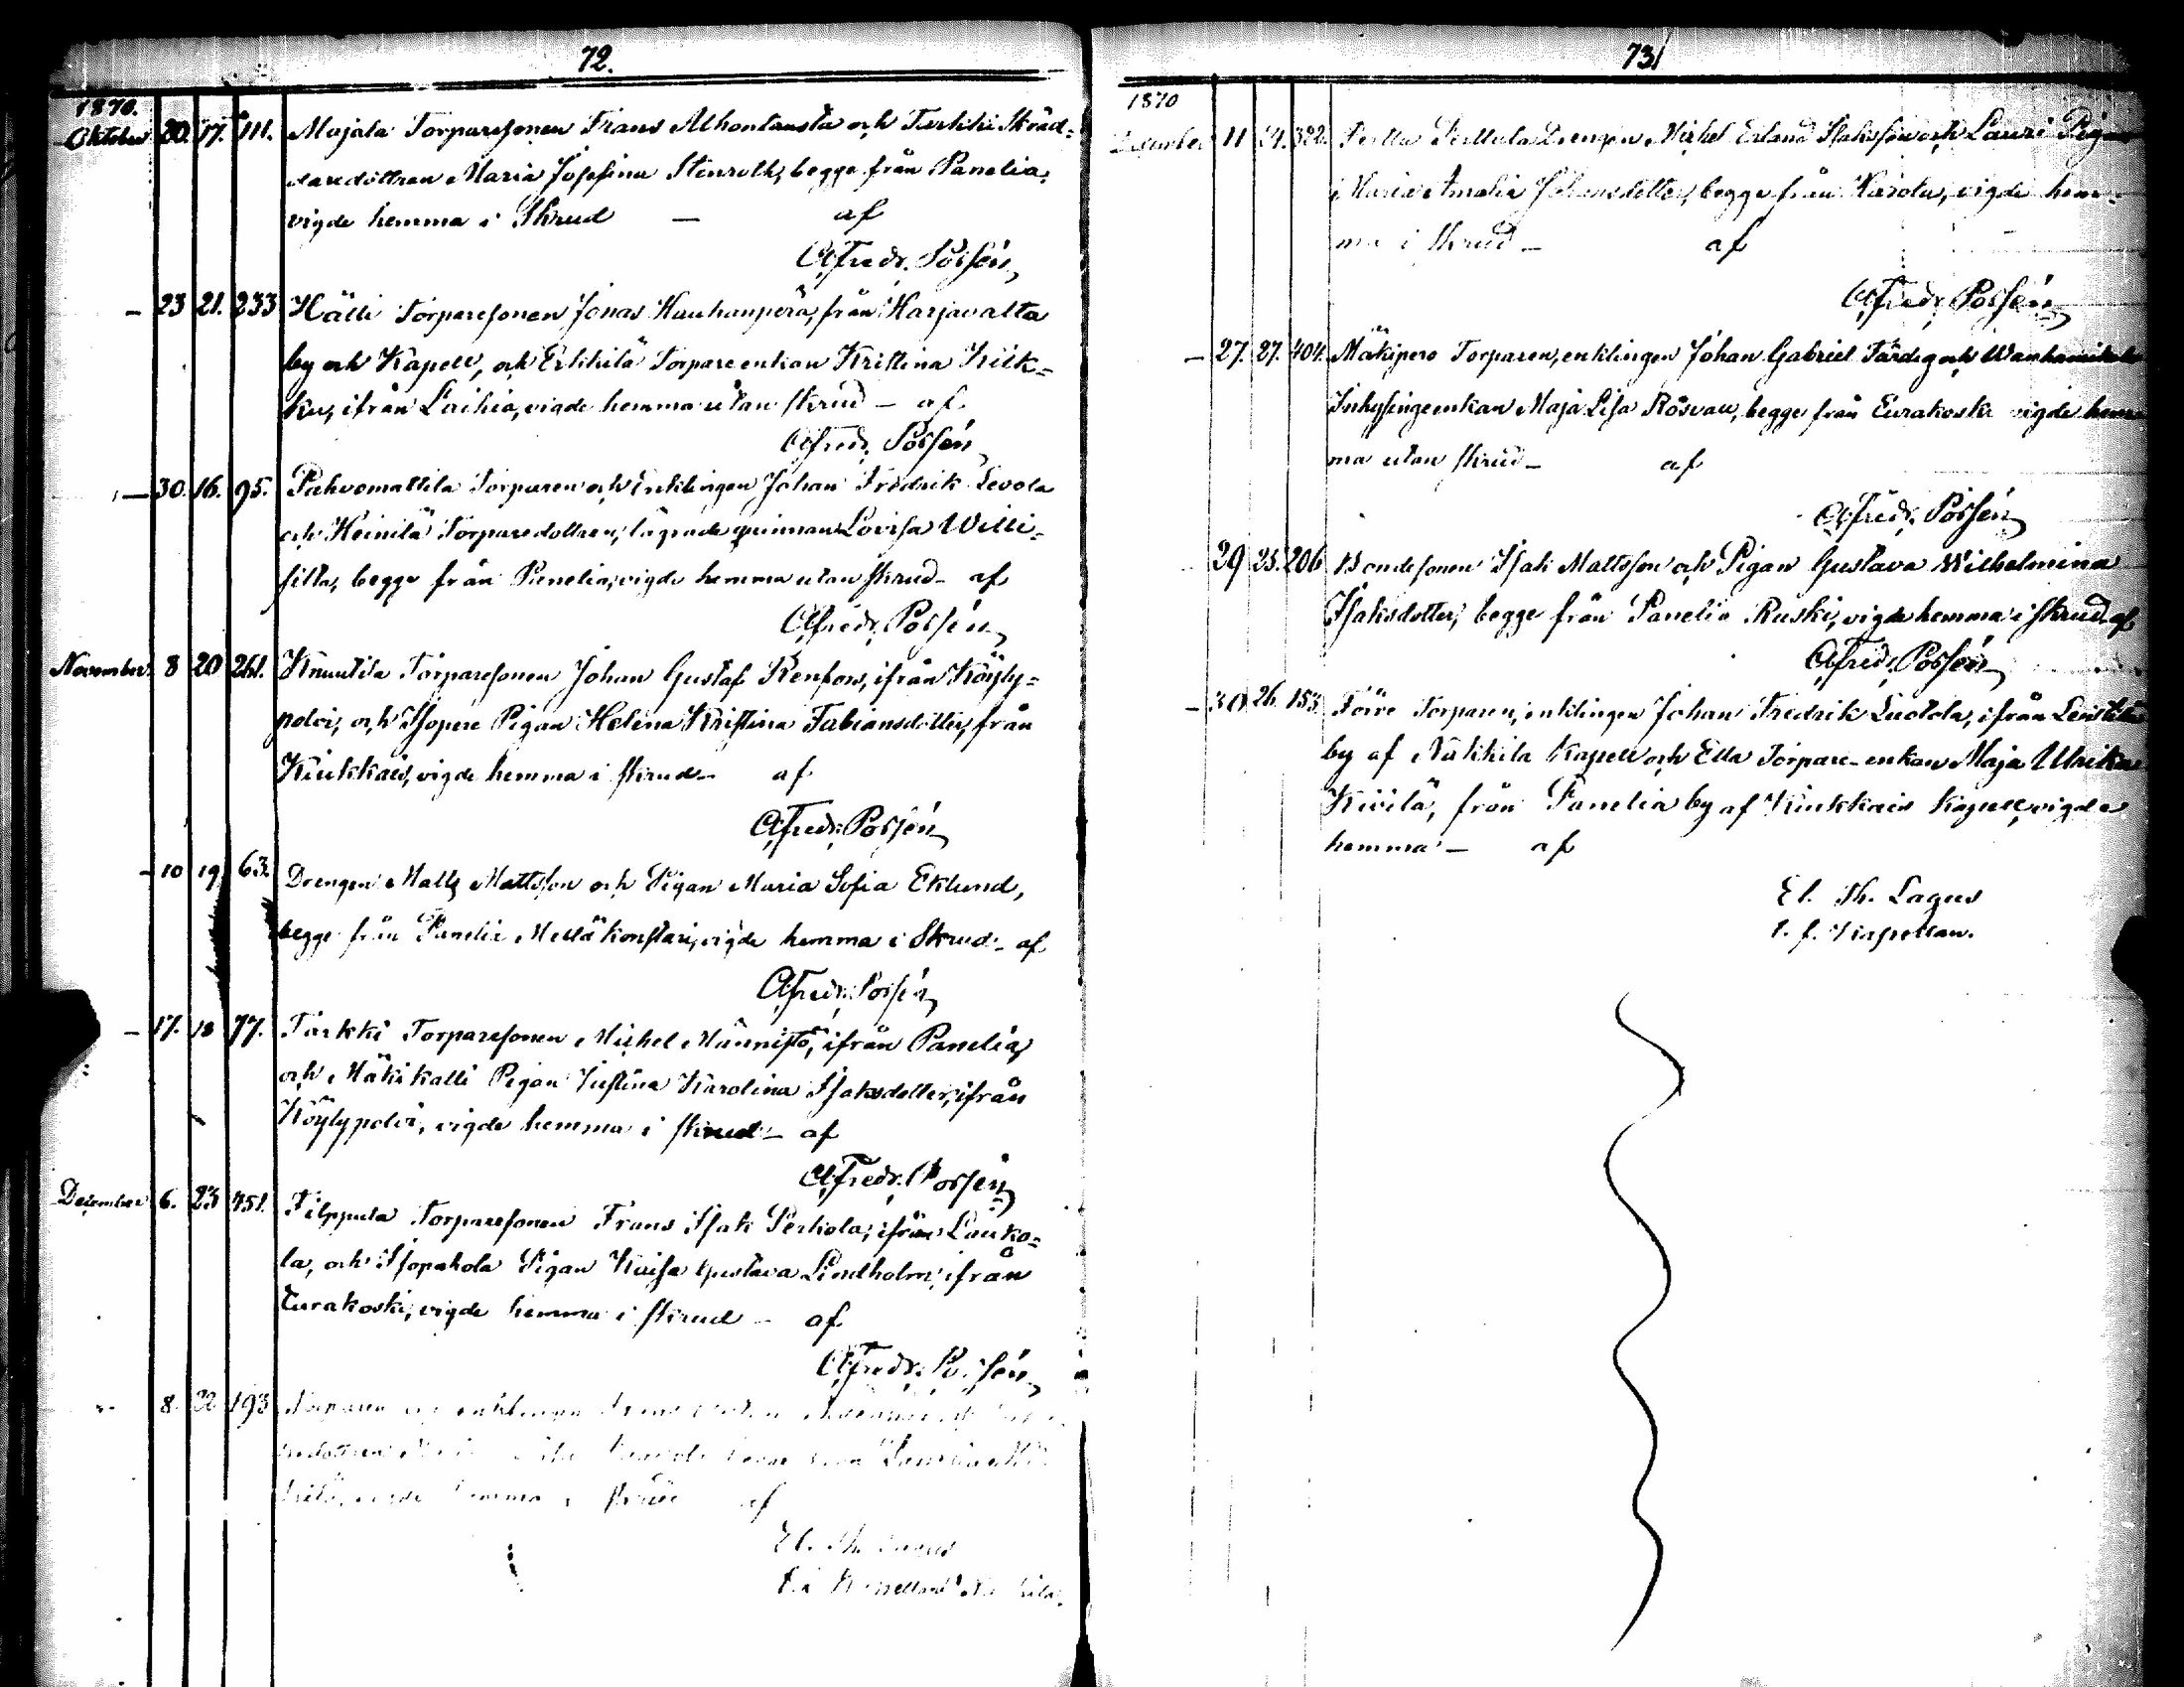 72.
1870.
Oktober 20. 17. 111. Majala Torparesonen Frans Alhontausta och Turkki Skräd=
daredottren Maria Josefina Stenroth, begge från Panelia,
vigde hemma i Skrud — af
Alfredr. Possén
— 23 21. 233 Hälli Torparesonen Jonas Hauhanperä, från Harjavalta
by och Kapell, och Erkkilä Torpareenkan Kristina Kilk=
ku, ifrån Laihia, vigde hemma utan skrud — af
Alfredr. Possén
— 30. 16. 95. Pahvomattila Torparen och Enklingen Johan Fredrik Levola
och Heinilä Torparedottren, lägrade quinnan Lovisa Willi=
, begge från Panelia, vigde hemma utan skrud — af
Alfredr. Possén
November 8 20 261. Knuutila Torparesonen Johan Gustaf Renfors, ifrån Köyly=
polvi, och Isopere Pigan Helena Kristina Fabiansdotter, från
Kiukkais, vigde hemma i skrud — af
Alfredr. Possén
— 10 19 63. Drengen Matts Mattsson och Pigan Maria Sofia Eklund,
begge från Panelia Mellä konstari, vigde hemma i Skrud — af
Alfredr. Possén
— 17. 18 77. Tarkki Torparesonen Michel Männistö, ifrån Panelia,
och Mäkikalli Pigan Justina Karolina Isaksdotter, ifrån
Köylypolvi, vigde hemma i skrud — af
Alfredr. Possén
December 6. 23 451. Filppula Torparesonen Frans Isak Perkola, ifrån Lauko=
la, och Isopahola Pigan Kaisa Gustava Lindholm, ifrån
Eurakoski, vigde hemma i skrud — af
Alfredr. Possén
8. 22 193 Torparen och enklingen
hemma i skrud af
El. Th. Lagus
73
1870
December 11 24. 322. Perttula Drengen Michel Erland Isaksson och Lauri Pigan
Maria Amalia Johansdotter, begge från Harola, vigde hem=
ma i skrud — af
Alfredr. Possén
— 27. 27. 404. Mäkipere Torparen, enklingen Johan Gabriel Färdig och
Inhysingeenkan Maja Lisa Rosvall, begge från Eurakoski vigde hem=
ma utan skrud — af
Alfredr. Possén
29 25. 206 Bondesonen Isak Mattsson och Pigan Gustava Wilhelmina
Isaksdotter, begge från Panelia Ruski, vigde hemma i skrud af
Alfredr. Possén
— 30 26. 153. Torparen, enklingen Johan Fredrik Luotola, ifrån
by af Nakkila Kapell och Ella Torpare-enkan Maja Ulrika
Kivilä, från Panelia by af Kiukkais Kapell, vigde
hemma — af
El. Th. Lagus
t. f. Kapellan.